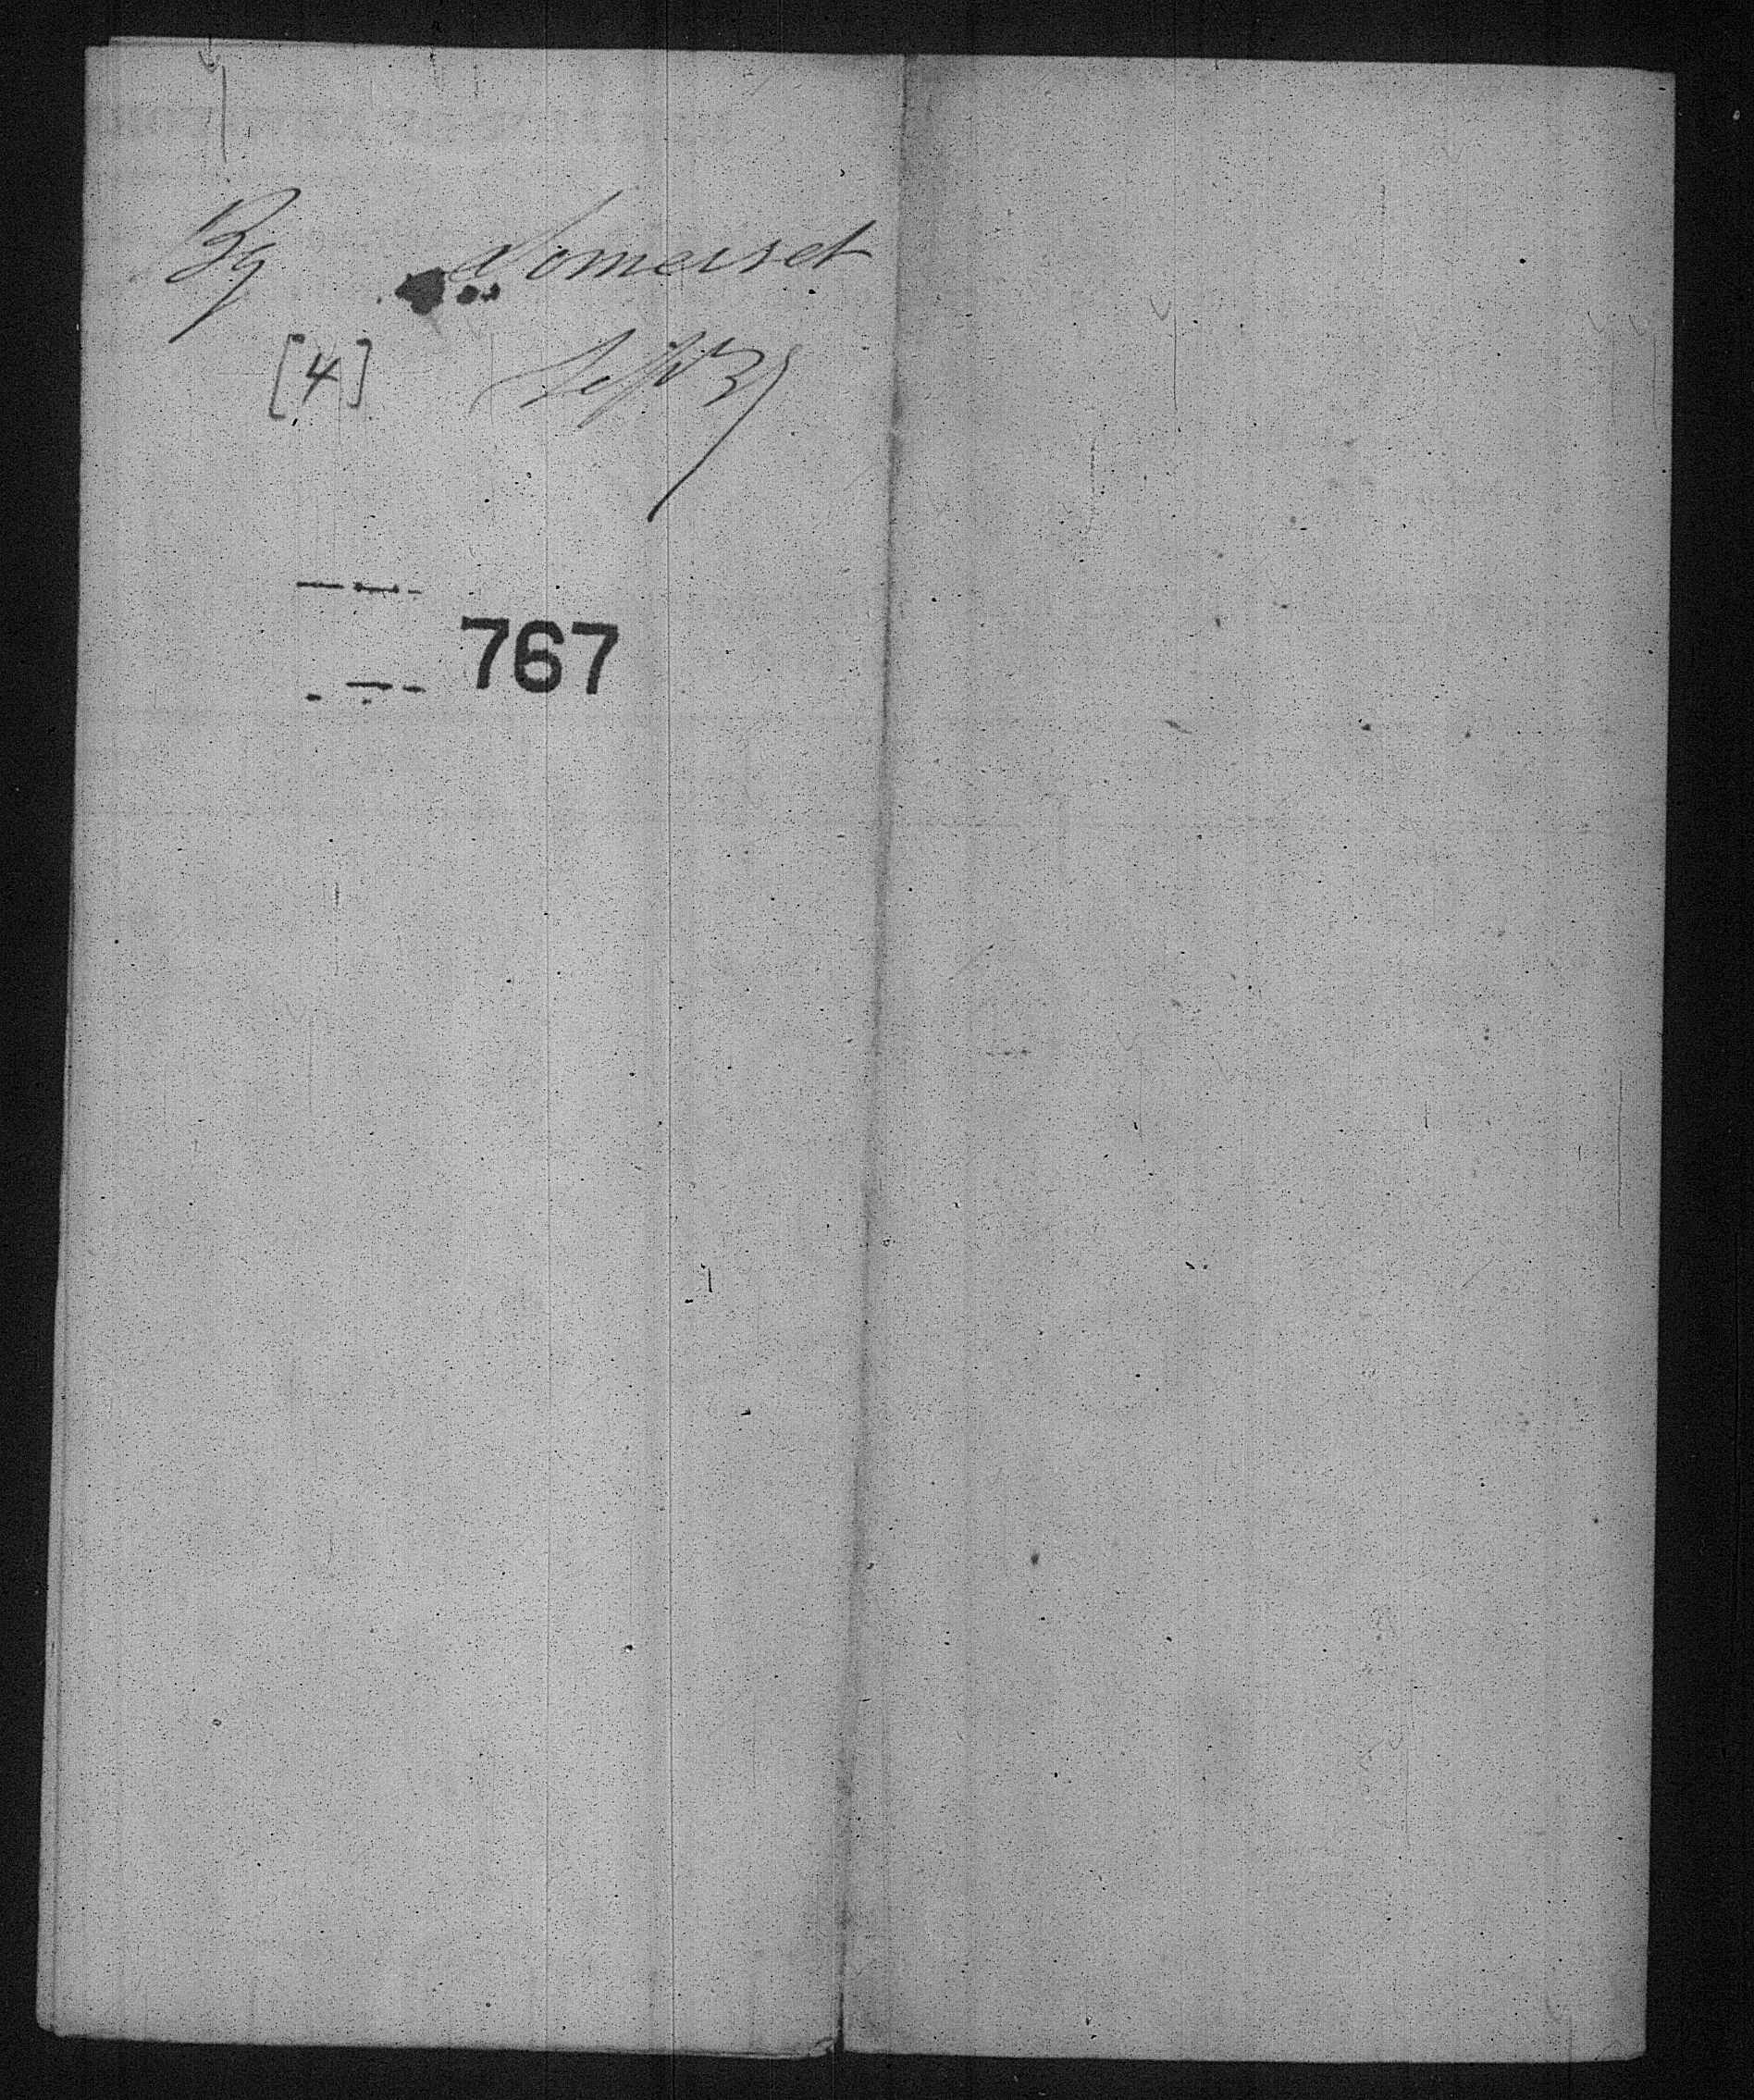 By Somerset
[4] Sept 3
767